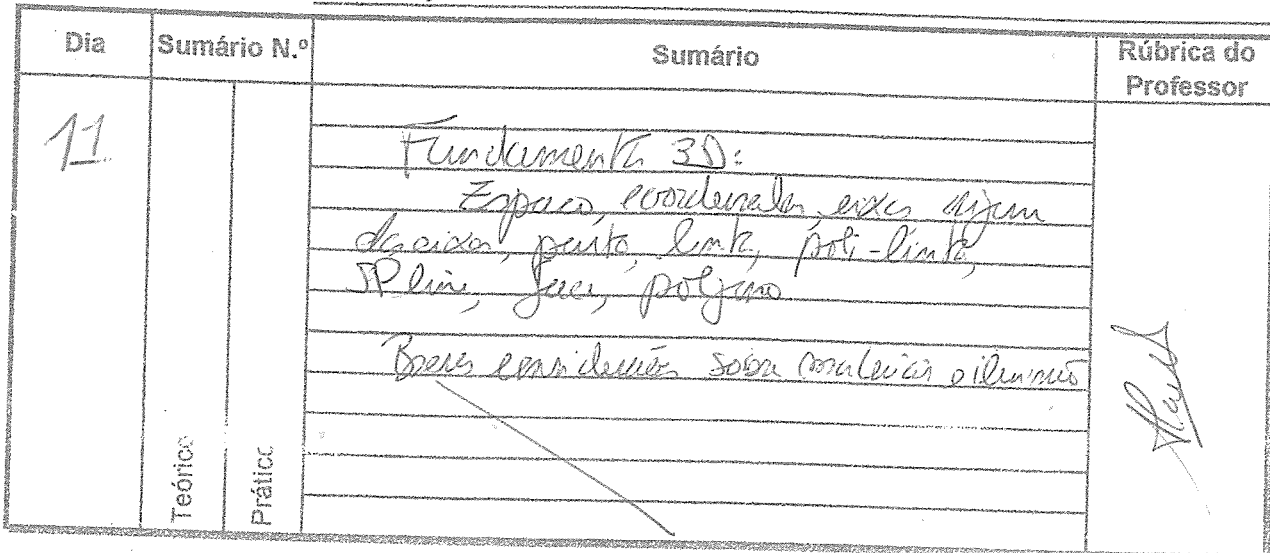 Dia
Sumário N.º
Sumário
Rúbrica do
Professor
11
Teórico
Prático
Fundamentos 3D:
Espaço, coordenadas, eixos
dos eixos, ponto, linha, poli-linha,
SPline, face, polígono
Breves considerações sobre materiais e iluminação